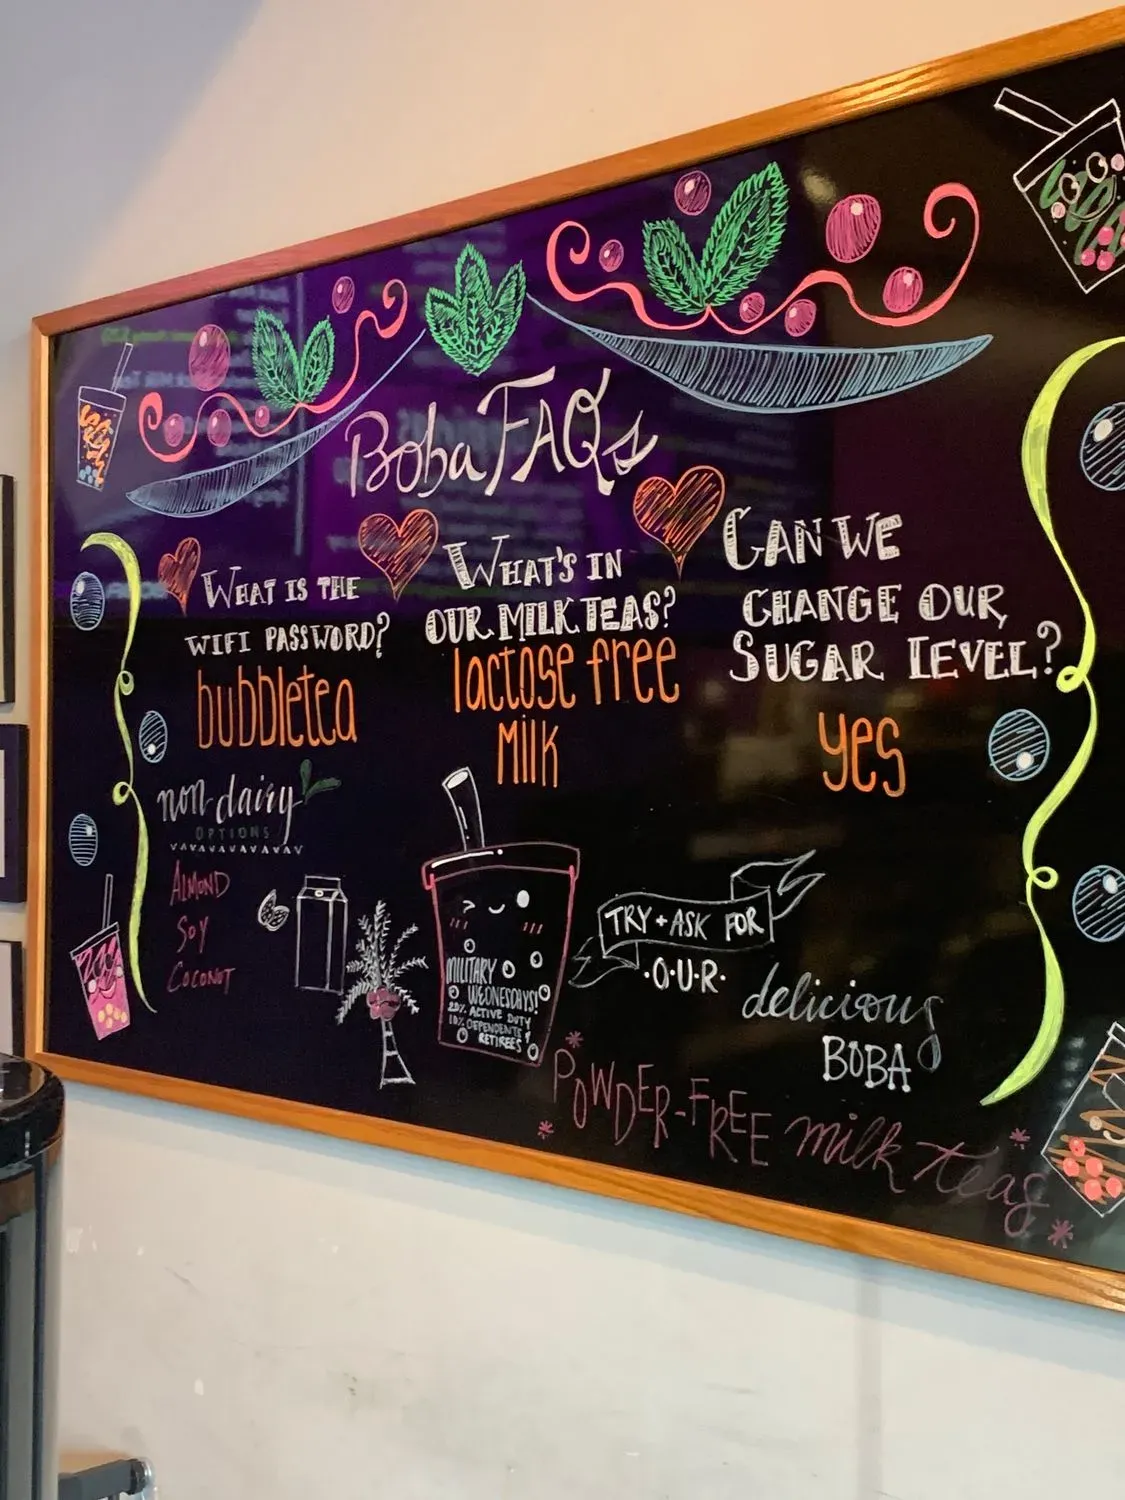 Boba FAQs
WHAT IS THE
WIFI PASSWORD?
bubbletea
WHAT'S IN
OUR MILK TEAS?
lactose free
Milk
CAN WE
CHANGE OUR
SUGAR LEVEL?
yes
non-dairy
OPTIONS
ALMOND
SOY
COCONUT
MILITARY
WEDNESDAYS!
20% ACTIVE DUTY
10% DEPENDENTS &
RETIREES
TRY + ASK FOR
·O·U·R·
delicious
BOBA
POWDER-FREE milk teas